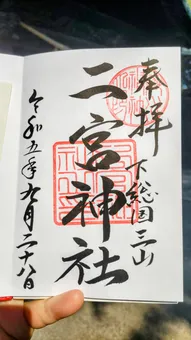 奉拝
下総国三山
二宮神社
令和五年九月二十八日